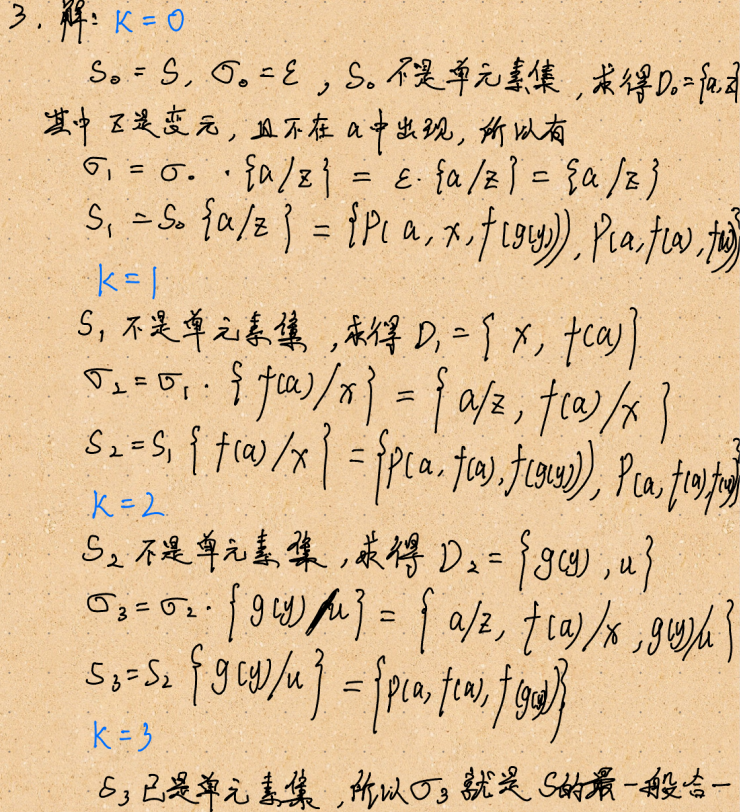 3. 解: K=0
S₀=S, σ₀=ε, S₀不是单元素集, 求得D₀={a,z}
其中z是变元, 且不在a中出现, 所以有
σ₁=σ₀·{a/z}=ε·{a/z}={a/z}
S₁=S₀{a/z}={P(a,x,f(g(y))),P(a,f(a),f(u))}
K=1
S₁不是单元素集, 求得D₁={x, f(a)}
σ₂=σ₁·{f(a)/x}={a/z, f(a)/x}
S₂=S₁{f(a)/x}={P(a,f(a),f(g(y))),P(a,f(a),f(u))}
K=2
S₂不是单元素集, 求得D₂={g(y),u}
σ₃=σ₂·{g(y)/u}={a/z, f(a)/x, g(y)/u}
S₃=S₂{g(y)/u}={P(a,f(a),f(g(y)))}
K=3
S₃已是单元素集, 所以σ₃就是S的最一般合一